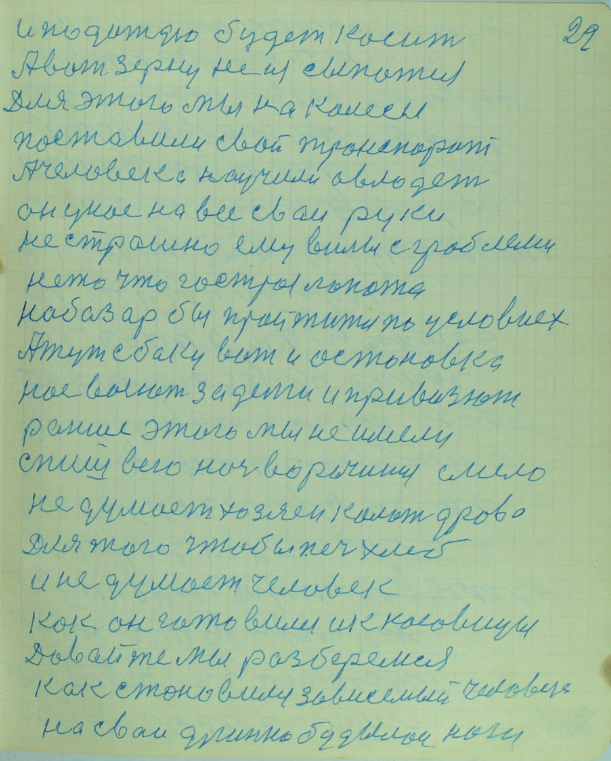 29
и подождю будет косит
А вот зерну не
Для этого мы на колесы
поставили свой транспорт
А человека научили овлодет
он на все сваи руки
не страшно ему вилы с граблеми
не то что гострыя лопота
на базар бы пройтити по условиех
А тут сбаку вот и остоновка
за дети и привозют
ранше этого мы не имели
всего ноч ворочиния смело
не думоет хозяен колот дрова
Для того чтобы печ хлеб
и не думоет человек
как он готовили их
Довайте мы разберемся
как становили зависемый человека
на сваи ноги